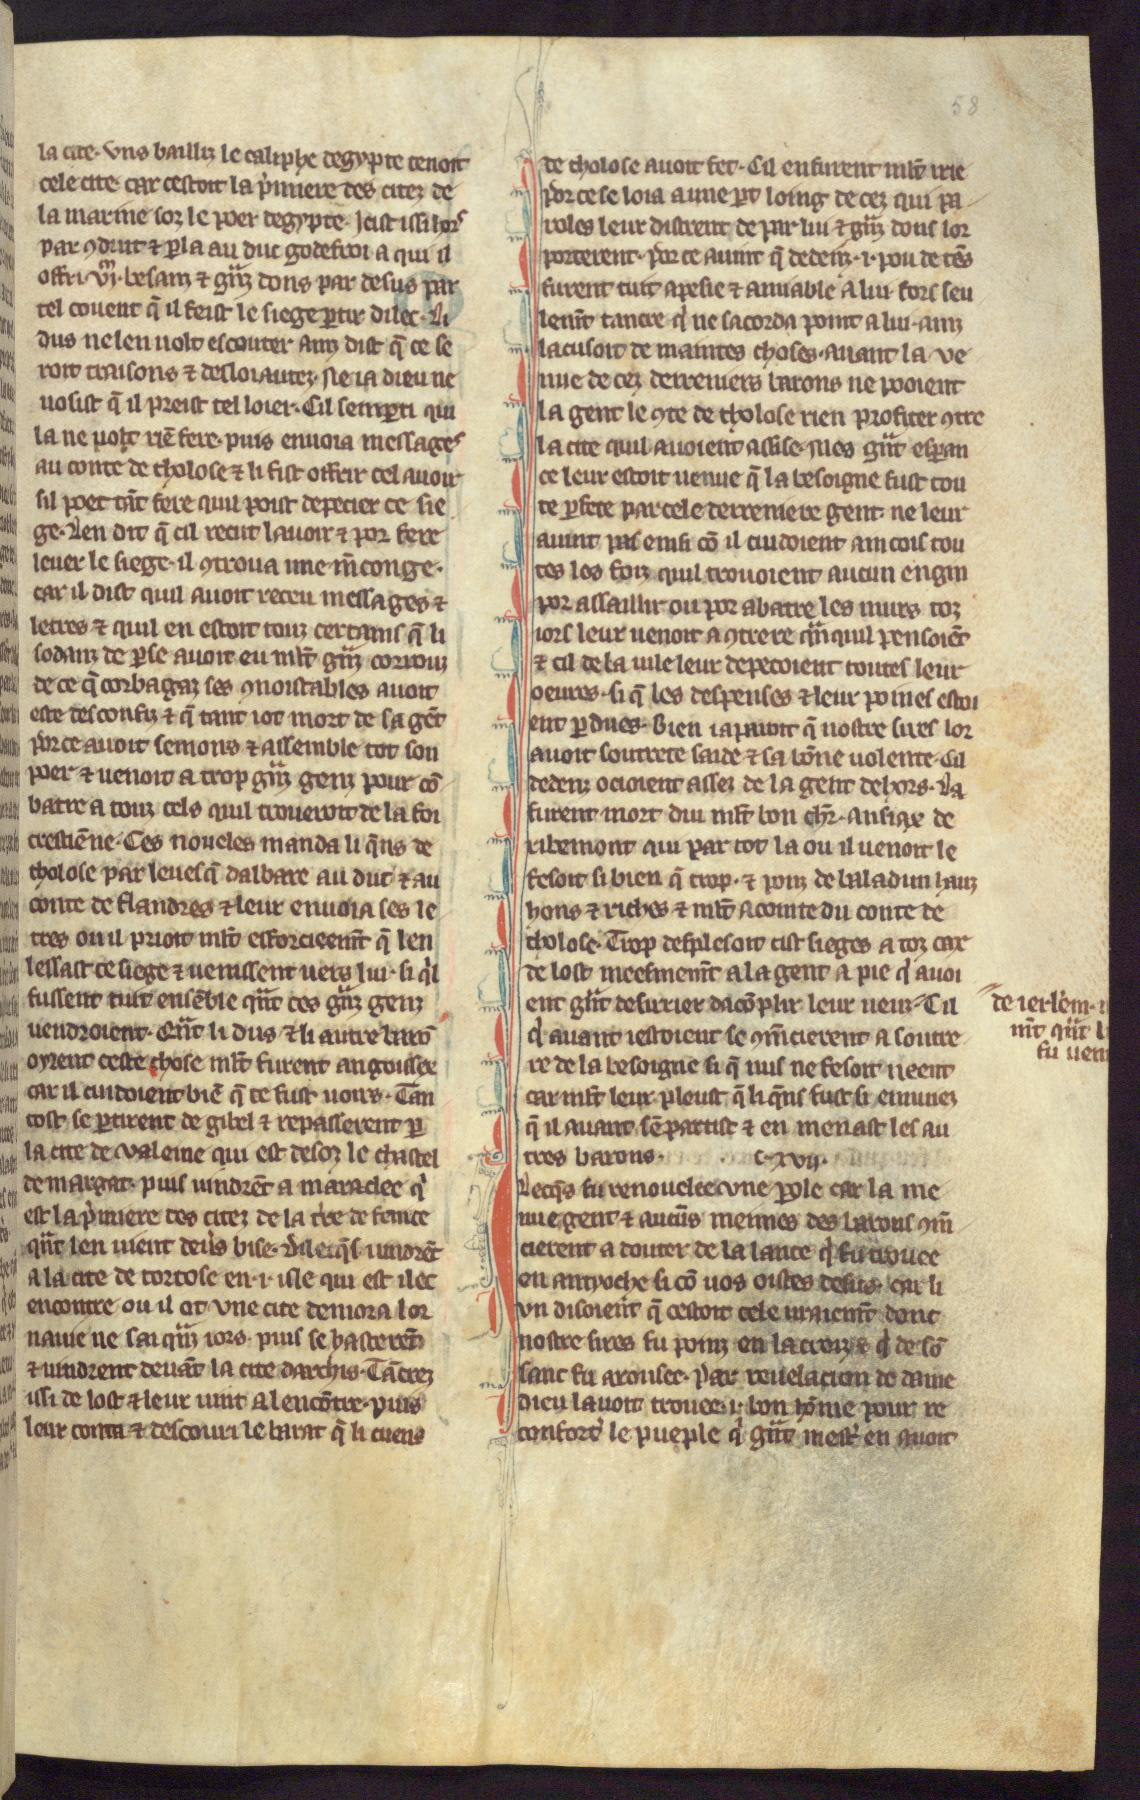 58
la cite. Vns bailliz le caliphe degypte tenoit
cele cite. car cestoit la p̍miere des citez de
la marine soz le poer degypte. Icist issi hors
par ꝯduit ⁊ ꝑla au duc godefroi a qui il
offri .vi.m besanz ⁊ gñz dons par desus par
tel couent q̃ il feist le siege ꝑtir dilec. Li
dus nelen uolt escouter ainz dist q̃ ce se
roit traisons ⁊ desloiautez. Ne ia dieu ne
uosist q̃ il preist tel loier. Cil senꝑti qui
la ne polt riẽ fere. puis enuoia messages
au conte de tholose ⁊ li fist offrir cel auoir
sil poet tãt fere quil poist depecier ce sie
ge. Len dit q̃ cil recut lauoir ⁊ por fere
leuer le siege. il ꝯtroua une mẽconge.
car il dist quil auoit receu messages ⁊
letres ⁊ quil en estoit touz certains q̃ li
sodanz de ꝑse auoit eu ml̃t gñz corrouz
de ce q̃ corbagaz ses ꝯnoistables auoit
este desconfiz ⁊ q̃ tant iot mort de sa gẽt
Por ce auoit semons ⁊ assemble tot son
poer ⁊ uenoit a trop gñz genz pour cõ
batre a touz cels quil troueroit de la foi
crestiẽne. Ces noueles manda li q̃ns de
tholose par leuesq̃ dalbare au duc ⁊ au
conte de flandres ⁊ leur enuoia ses le
tres ou il prioit ml̃t efforcieemt̃ q̃ len
lessast ce siege ⁊ uenissent uers lui. si q̍l
fussent tuit ensẽble qñt ces gñz genz
uendroient. Qñt li dus ⁊ li autre barõ
oyrent ceste chose ml̃t furent angoissee
car il cuidoient biẽ q̃ ce fust uoirs. Tan
tost se ꝑtirent de gibel ⁊ repasserent ꝑ
la cite de valenie qui est desoz le chastel
de margat. puis uindrẽt a maraclee q̍
est la p̍miere des citez de la t̃re de fenice
qñt len uient deũs bise. Dilecq̃s uindrẽt
a la cite de tortose en .i. isle qui est ilec
encontre ou il ot vne cite demora lor
nauie ne sai qñz iors. puis se hasterẽt
⁊ uindrent deuãt la cite darchis. Tãcrez
issi de lost ⁊ leur uint a lencõtre. puis
leur conta ⁊ descouri le barat q̃ li cuens
de tholose auoit fet. Cil en furent ml̃t irie
Por ce se loia a une ꝑt loing de cez qui pa
roles leur distrent de par lui ⁊ gñz dons lor
porterent. Por ce auint q̃ dedenz .i. pou de tẽs
furent tuit apesie ⁊ amiable a lui fors seu
lemt̃ tancre q̍ ne sacorda point a lui. ainz
lacusoit de maintes choses. Auant la ve
nue de cez derreniers barons ne pooient
la gent le ꝯte de tholose rien profiter ꝯtre
la cite quil auoient assise. Mes gñt esꝑan
ce leur estoit uenue q̃ la besoigne fust tou
te ꝑfete par cele derreniere gent. ne leur
auint pas einsi cõ il cuidoient aincois tou
tes les foiz quil trouoient aucun engin
por assaillir ou por abatre les murs toz
iors leur uenoit a ꝯtrere qñquil pensoiẽt
⁊ cil de la uile leur depecoient toutes leur
oeures. si q̃ les despenses ⁊ leur poines estoi
ent ꝑdues. Bien ia paroit q̃ nostre sires lor
auoit soutrete saide ⁊ sa bõne uolente. Cil
dedenz ocioient assez de la gent dehors. La
furent mort dui ml̃t bon chr̃. Ansiax de
ribemont qui par tot la ou il uenoit le
fesoit si bien q̃ trop. ⁊ ponz de baladun hauz
hons ⁊ riches ⁊ ml̃t acointe du conte de
tholose. Trop desplesoit cist sieges a toz cax
de lost meesmemt̃ a la gent a pie q̍ auoi
ent gñt desirrier dacõplir leur ueuz. Cil
de ierl̃m.
mt̃ qñt l
fu ueni
q̍ auant iestoient se ꝯm̃cierent a soutre
re de la besoigne si q̃ nus ne fesoit neent
car ml̃t leur pleust q̃ li q̃ns fust si ennuiez
q̃ il auant sẽ partist ⁊ en menast les au
tres barons. c. xvii.
Lecq̃s fu renouelee vne ꝑole car la me
nue gent ⁊ aucũs meismes des barons ꝯm̃
cierent a douter de la lance q̍ fu trouee
en antyoche si cõ uos oistes desus. car li
vn disoient q̃ cestoit cele uraiemt̃ dont
nostre sires fu poinz en la croiz ⁊ q̍ de sõ
sanc fu arousee. Par reuelacion de dame
dieu lauoit trouee .i. bon hõme pour re
confort̃ le pueple q̍ gñt mest̃ en auoit